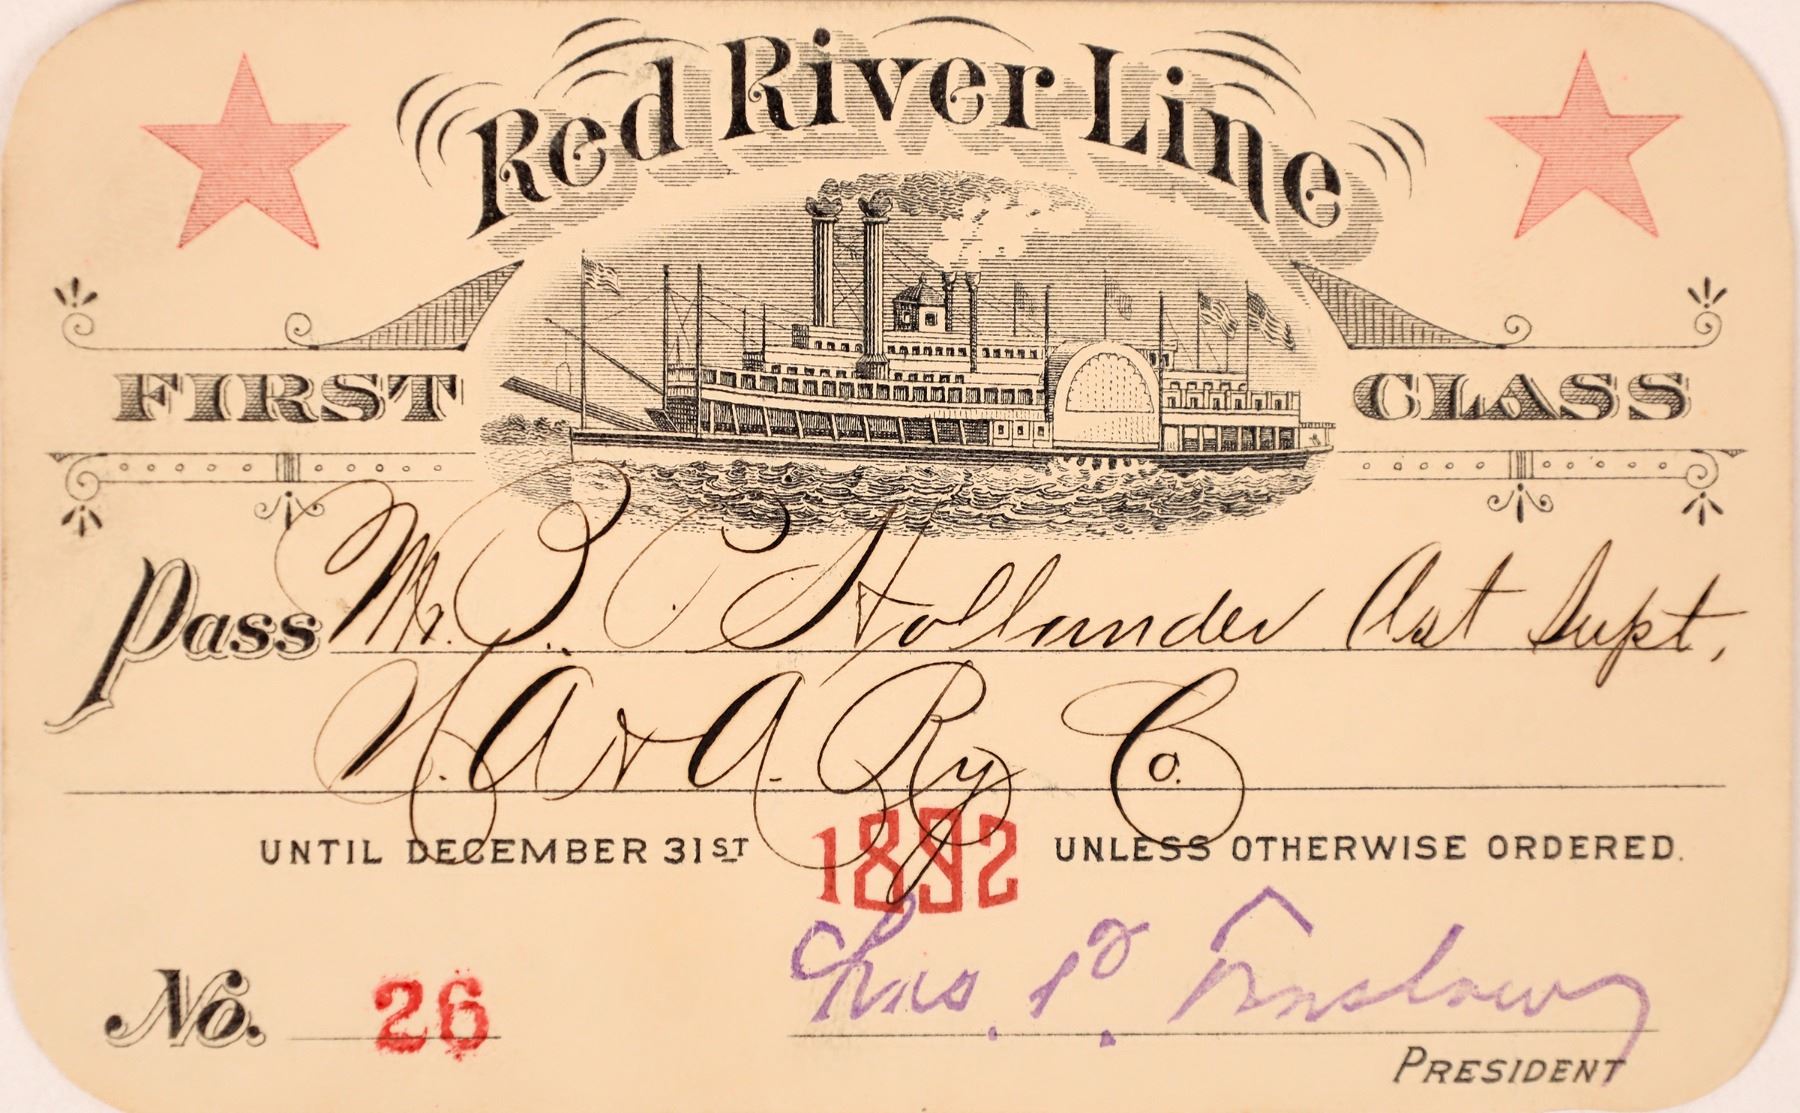 Red River Line
FIRST CLASS
Pass Mr. C. Hollander Ast Supt,
N. A & A. Ry Co.
UNTIL DECEMBER 31ST 1892 UNLESS OTHERWISE ORDERED.
No. 26 Chas. P.
PRESIDENT